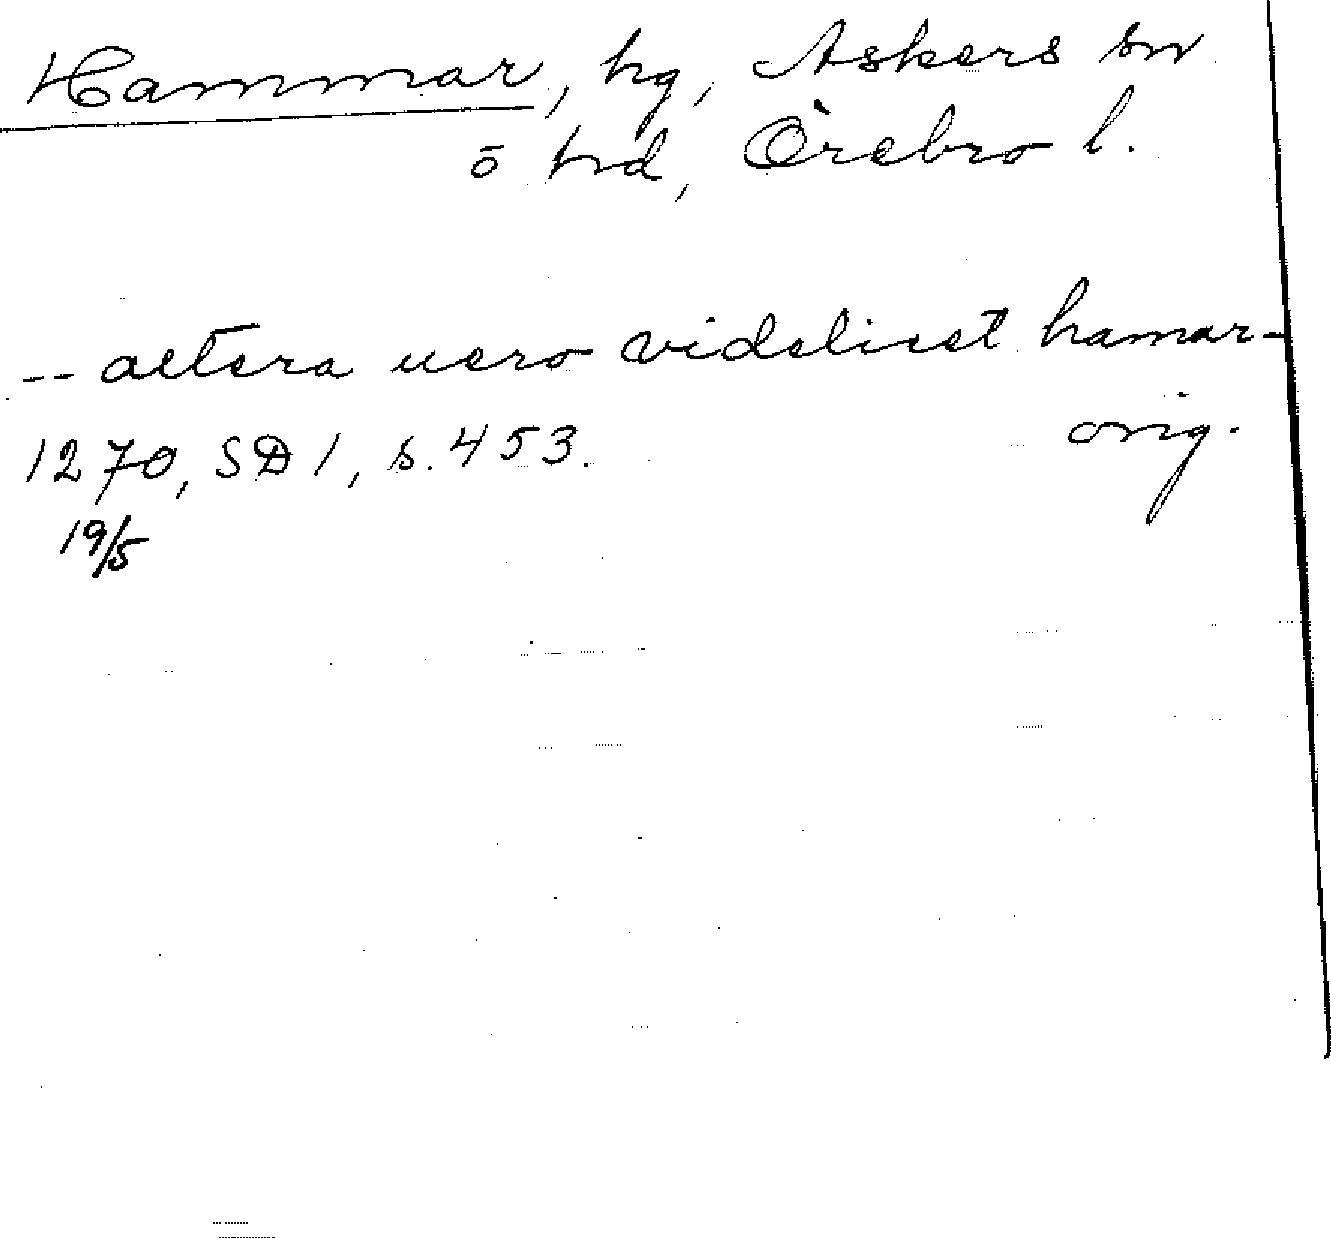 Hammar, hg, Askers sn
ö hd, Örebro l.
-- altera uero videlicet hamar-
1270, SD 1, s. 453. orig.
19/5